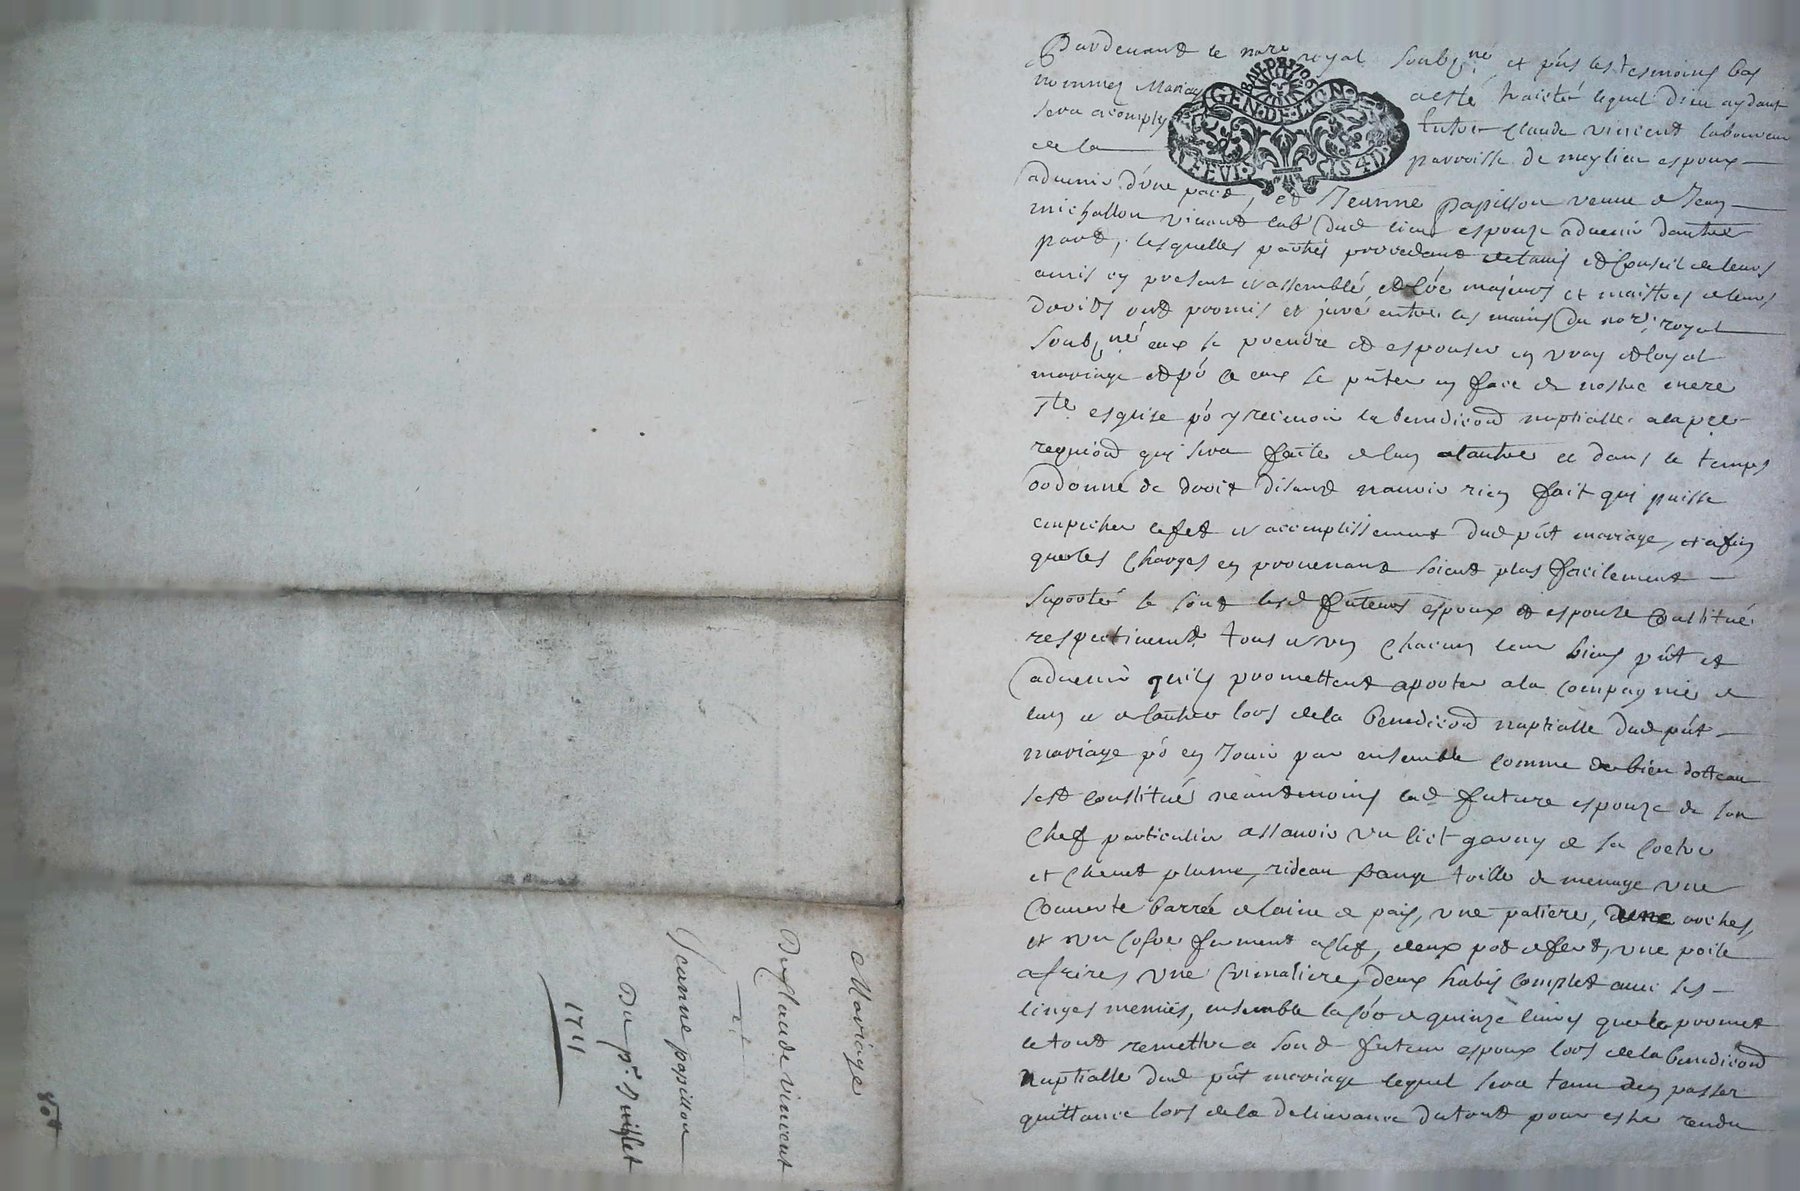 Pardevant le no.re royal soubz.né et p̃ns les tesmoins bas
nommes Mariage a esté traicté lequel dieu aydant
sera acomply entre Claude vincent laboureur
de la parroisse de meylieu espoux
advenir d'une part, et Jeanne papillon veuve de Jean
michallon vivant lab.r dud lieu espouze advenir dautre
part, lesquelles parties procedant de lavis et Conseil de leurs
amis cy present et assemblé et loé majeurs et maistres de leurs
droits ont promis et juré entre les mains du no.re royal
soubz.né eux se prendre et espouser en vray et loyal
mariage et po.r ce eux se p̃nter en face de nostre mere
s.te esglise po.r y recevoir la benediction nuptialle a la pre
requi​on qui sera faite de lun a lautre et dans le temps
ordonné de droit disant navoir rien fait qui puisse
empecher lefet et accomplissement dud p̃nt mariage, et afin
que les Charges en provenant soient plus facilement
suporté se sont lesd futeurs espoux et espouze Constitué
respectivem.t tous et un Chacun leur biens p̃nt et
advenir quils promettent aporter a la Compagnie de
lun et de lautre lors de la benediction nuptialle dud p̃nt
mariage po.r en Jouir par ensemble Comme de bien dottaux
sest Constitué neantmoins lad future espouze de son
Chef particulier assavoir un lict garny de sa Coetre
et Chevet plume, rideau frange toille de menage une
Couverte barrée de laine de pais, une patiere, arches,
et un Cofre fermant a Clef, deux pot de fert, une poile
a frires, une Crimaliere, deux habis Complet avec les
linges menües, ensemble la so.e de quinze livres que le promet
le tout remettre a sond futeur espoux lors de la benediction
nuptialle dud p̃nt mariage lequel sera tenu den passer
quittance lors de la delivrance du tout pour estre rendu
GEN·DE·LION
Mariage
De Claude vincent
et
Jeanne papillon
Du p.r Juillet
1711